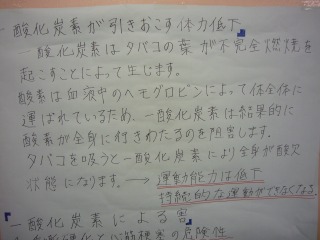 一酸化炭素が引きおこす体力低下
一酸化炭素はタバコの葉が不完全燃焼を
起こすことによって生じます。
酸素は血液中のヘモグロビンによって体全体に
運ばれているため、一酸化炭素は結果的に
酸素が全身に行きわたるのを阻害します。
タバコを吸うと一酸化炭素により全身が酸欠
状態になります。→運動能力は低下
持続的な運動ができなくなる。
一酸化炭素による害
動脈硬化と心筋梗塞の危険性